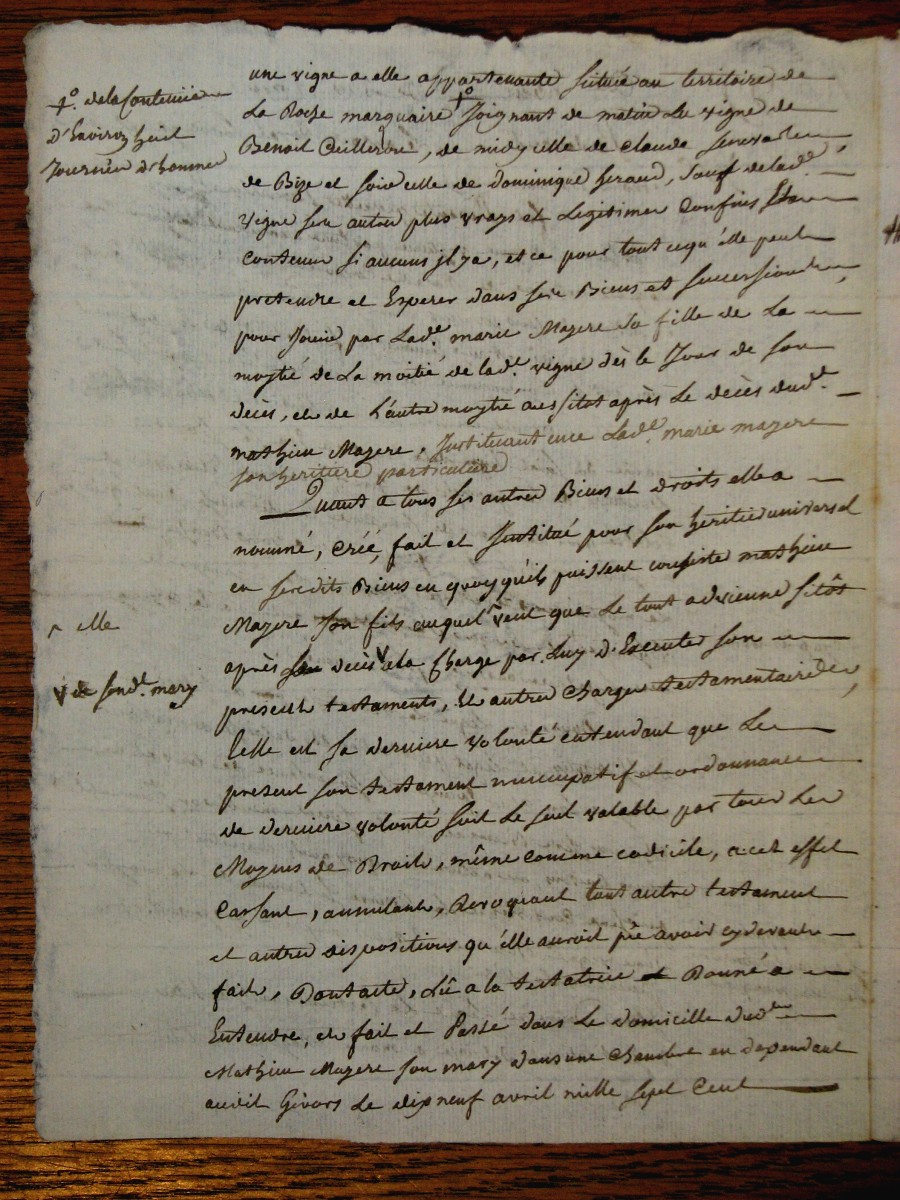 une vigne a elle appartenante scituée au territoire de
La Roche marquaire Joignant de matin Le vigne de
Benoit Cuillerme, de midy celle de Claude
de Bize et soir celle de Dominique Geraud, sauf de lad.e
vigne ses autres plus vrays et Legitimes Confins
contenus si aucuns jl y a, et ce pour tout cequ'elle peut
pretendre et Esperer dans ses Biens et succession
pour Jouir par Lad.e marie Mazere sa fille de La
moytié de La moitié de lad.e vigne dès le Jour de son
decès, et de L'autre moytié aussitot après Le decès dud.t
mathieu Mazere, Instituant lad.e marie mazere
son heritiere particuliere
Quant a tous ses autres Biens et droits elle a
nommé, créé, fait et Institué pour son heritier universel
en sesdits Biens en quoy qu'ils puissent consister mathieu
Mazere son fils auquel veut que Le tout advienne sitôt
après decès a la Charge par Luy d'Executer son
present testament, Et autres Charges testamentaires
Telle est sa derniere volonté entendant que Le
present son testament nuncupatif et ordonnance
de derniere volonté soit Le seul valable par tous Les
Moyens de Droit, même comme codicile, a cet effet
Cassant, annulant, Revoquant tout autre testament
et autres dispositions qu'elle auroit pû avoir cy devant
fait, Dont acte, Lû a la testatrice et Donné a
Entendre, et fait et Passé dans Le domicille dud.t
Mathieu Mazere son mary dans une Chambre en dependant
audit Givors Le dix neuf avril mille sept Cent
de la Contenue
D'Environ huit
Journées d'hommes
elle
de sond.t mary